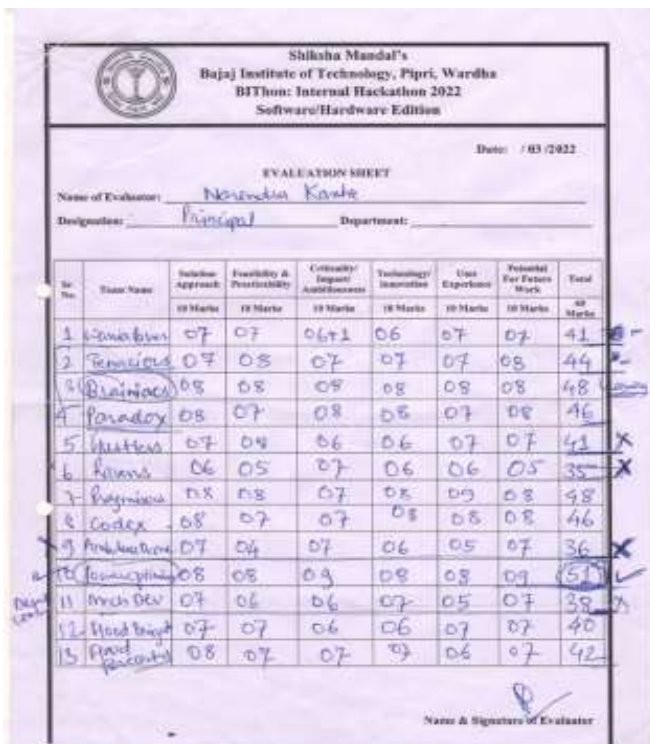 Shiksha Mandal's
Bajaj Institute of Technology, Pipri, Wardha
BIThon: Internal Hackathon 2022
Software/Hardware Edition
Date: / 03 /2022
EVALUATION SHEET
Name of Evaluator: Narendra Kante
Designation: Principal Department:
Sr. No. Team Name Solution Approach Feasibility & Practicability Criticality/ Impact/ Ambitiousness Technology/ Innovation User Experience Potential For Future Work Total
10 Marks 10 Marks 10 Marks 10 Marks 10 Marks 10 Marks 60 Marks
1 07 07 06+1 06 07 07 41
2 Tenacious 07 08 07 07 07 08 44
3 Brainiacs 08 08 08 08 08 08 48
4 Paradox 08 07 08 08 07 08 46
5 07 08 06 06 07 07 41 X
6 06 05 07 06 06 05 35 X
7 08 08 07 08 09 08 48
8 Codex 08 07 07 08 08 08 46
9 07 04 07 06 05 07 36 X
10 08 08 09 08 08 09 51
11 Mech Dev 07 06 06 07 05 07 38 X
12 07 07 06 06 07 07 40
13 08 07 07 07 06 07 42
Name & Signature of Evaluator